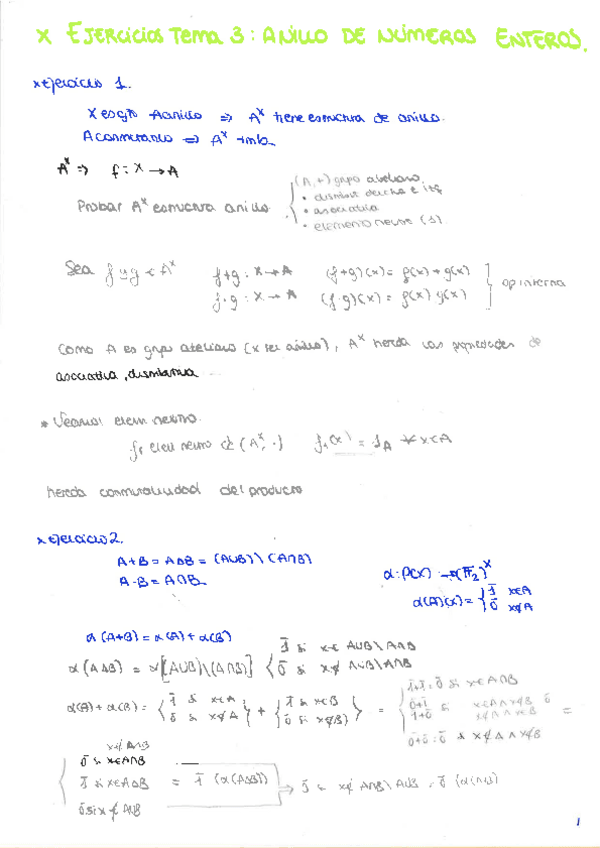 x EJERCICIOS TEMA 3: ANILLO DE NÚMEROS ENTEROS.
x Ejercicio 1.
X es cjto A anillo ⇒ Aˣ tiene estructura de anillo.
A conmutativo ⇒ Aˣ tmb.
Aˣ ⇒ f: X → A
Probar Aˣ estructura anillo
(A,+) grupo abeliano.
• distribut derecha e izq
• asociativa
• elemento neutro (1)
Sea f y g ∈ Aˣ
f+g: X → A (f+g)(x) = f(x)+g(x)
f·g: X → A (f·g)(x) = f(x) g(x)
op interna
Como A es grupo abeliano (x ser anillo), Aˣ hereda las propiedades de
asociativa, distributiva
* Veamos elem neutro.
f₁ elem neutro de (Aˣ, ·) f₁(x) = 1_A ∀x∈A
hereda conmutatividad del producto
x Ejercicio 2.
A+B = A∆B = (A∪B)\(A∩B)
A·B = A∩B
α: P(X) → (F₂)ˣ
α(A)(x) = { 1̄ x∈A
0̄ x∉A
α(A+B) = α(A)+α(B)
α(A∆B) = α[(A∪B)\(A∩B)] { 1̄ si x∈ A∪B\A∩B
0̄ si x∉ A∪B\A∩B
α(A)+α(B) = { 1̄ si x∈A
0̄ si x∉A } + { 1̄ si x∈B
0̄ si x∉B } =
1̄+1̄: 0̄ si x∈A∩B
0̄+1̄
1̄+0̄ si x∈A∧x∉B ó
x∉A∧x∈B =
0̄+0̄: 0̄ si x∉A∧x∉B
x∉A∩B
0̄ si x∈A∩B
1̄ si x∈A∆B = 1̄ (α(A∆B))
0̄ si x∉A∪B